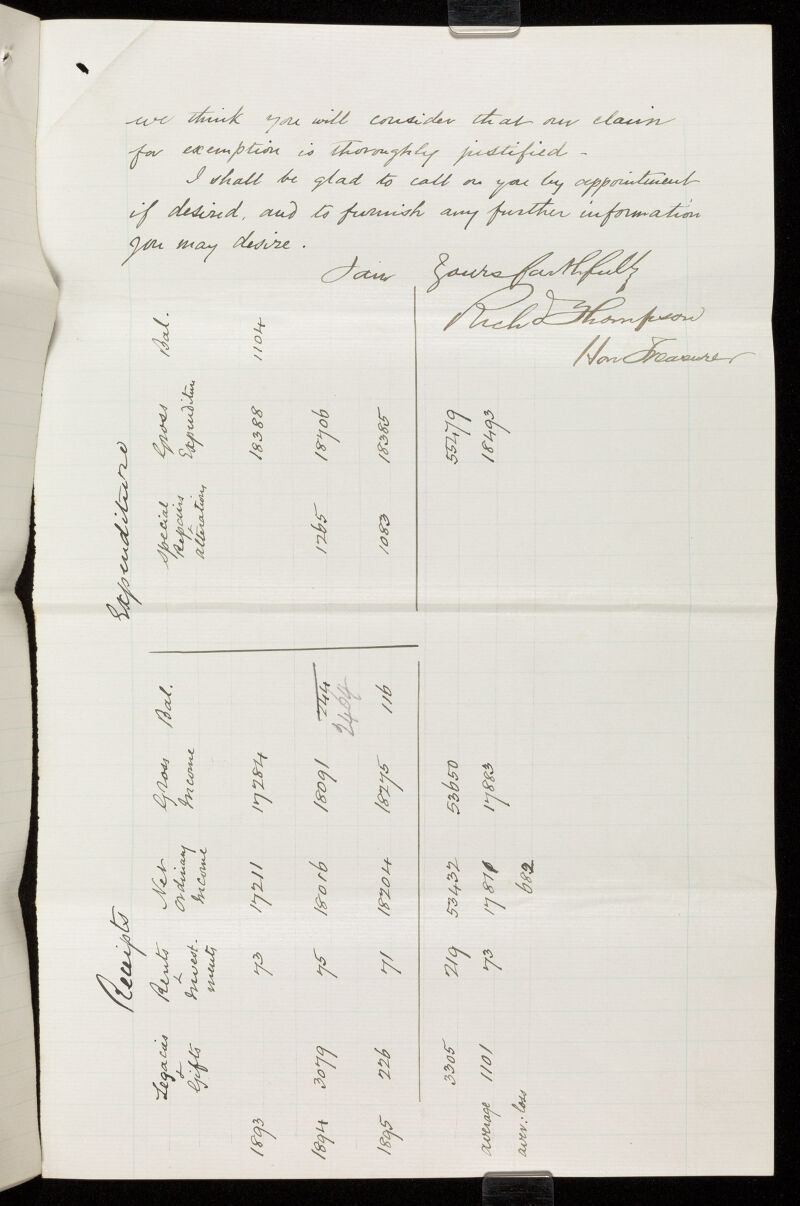 we think you will consider that our claim
for exemption is thoroughly justified -
I shall be glad to call on you by appointment
if desired, and to furnish any further information
you may desire.
I am Yours faithfully
Richd Thompson
Hon Treasurer
Receipts Expenditure
Legacies & Gifts Rents & Invest- ments Net Ordinary Income Gross Income Bal. Special Repairs & alterations Gross Expenditure Bal.
1893 73 17211 17284 18388 1104
1894 3079 75 18016 18091 244 1265 18706
2464
1895 226 71 18204 18275 116 1083 18385
3305 219 53432 53650 55479
average 1101 73 17810 17883 18493
aver: loss 682